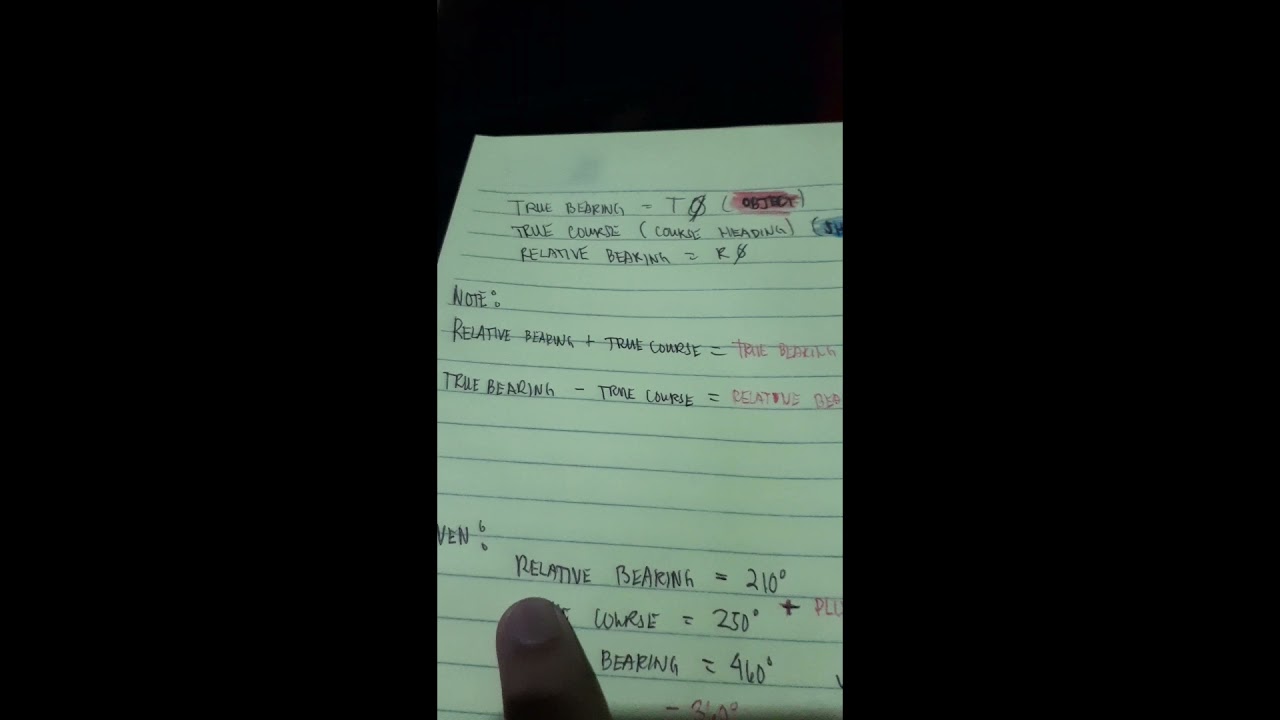 TRUE BEARING = TØ (OBJECT)
TRUE COURSE (COURSE HEADING) (SH
RELATIVE BEARING = RØ
NOTE:
RELATIVE BEARING + TRUE COURSE = TRUE BEARING
TRUE BEARING - TRUE COURSE = RELATIVE BEA
VEN:
RELATIVE BEARING = 210°
COURSE = 250° + PLU
BEARING = 460°
- 360°